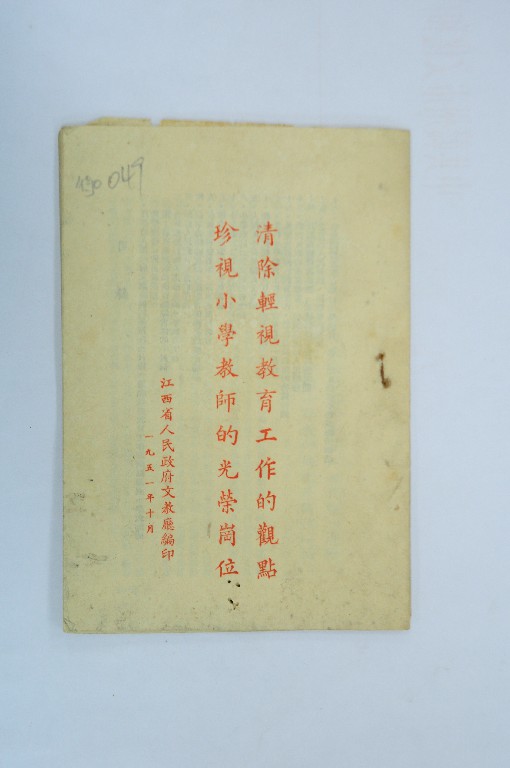 清除輕視教育工作的觀點
珍視小學教師的光榮崗位
江西省人民政府文教廳編印
一九五一年十月
049